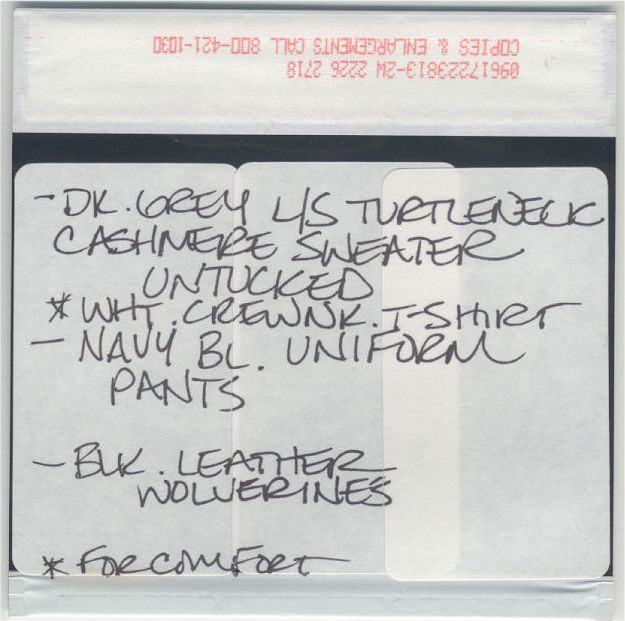 COPIES & ENLARGEMENTS CALL 800-421-1030
09617223813-2W 2226 2718
- DK. GREY L/S TURTLENECK
CASHMERE SWEATER
UNTUCKED
* WHT. CREWNK. T-SHIRT
- NAVY BL. UNIFORM
PANTS
- BLK. LEATHER
WOLVERINES
* FOR COMFORT